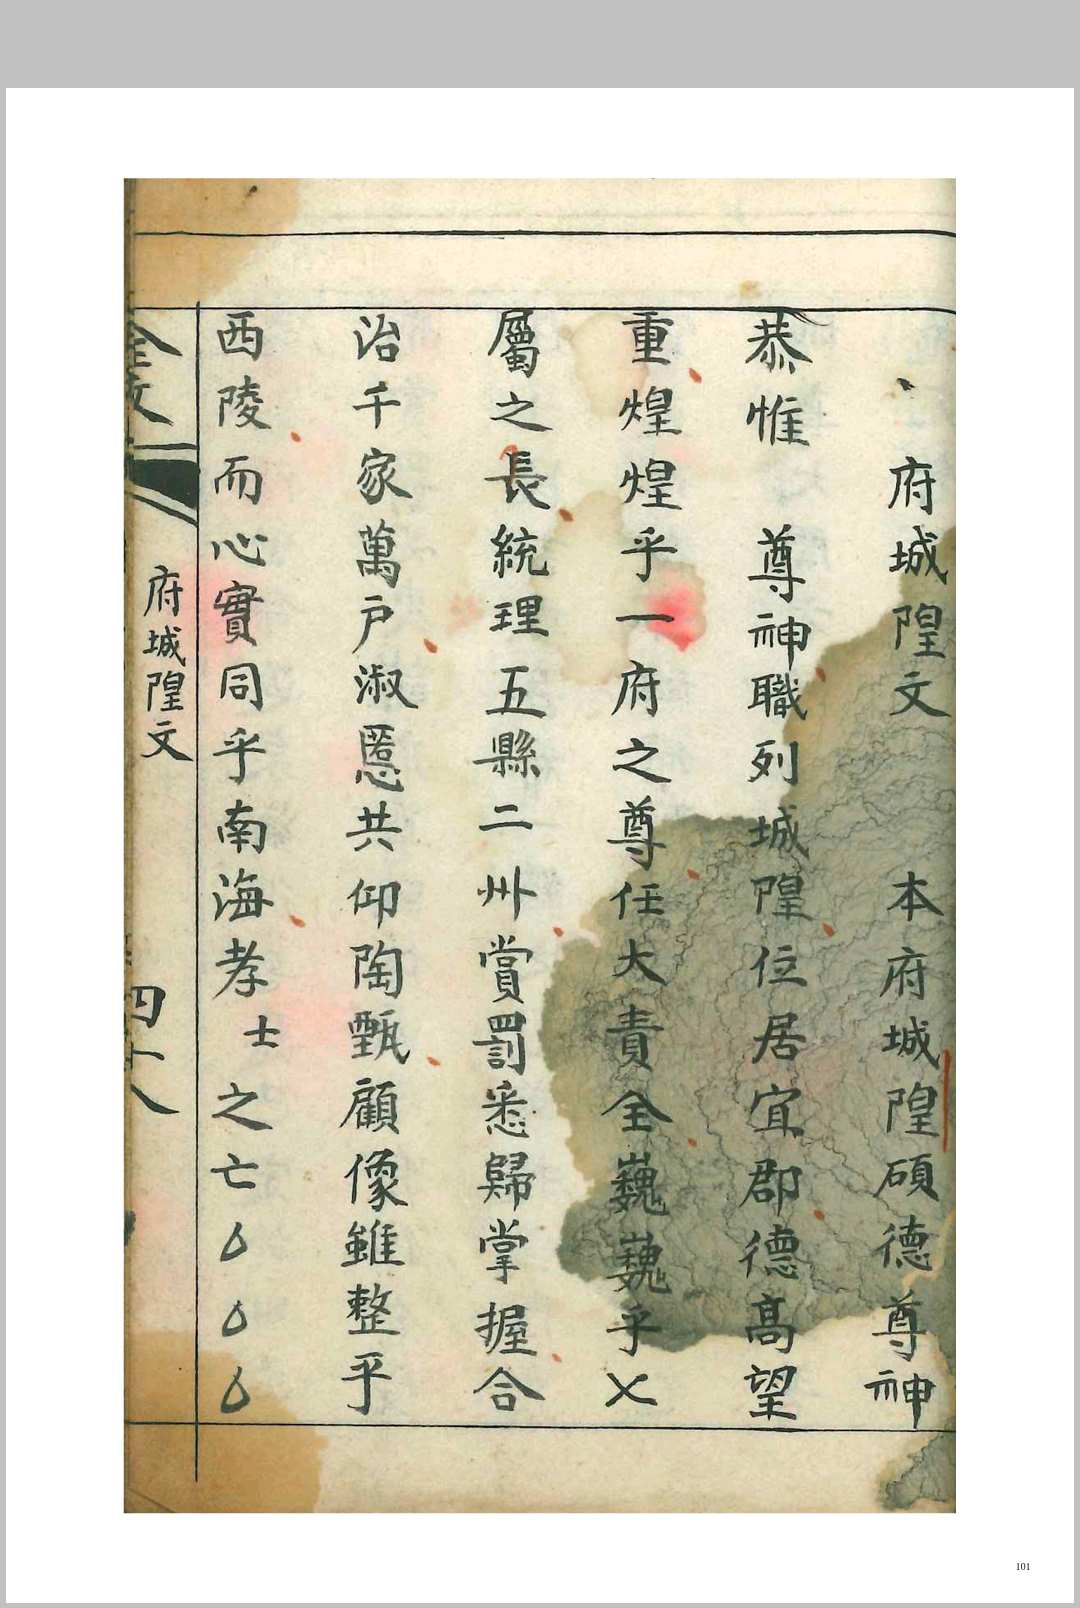 府城隍文　本府城隍碩德尊神
恭惟　尊神職列城隍位居宜郡德高望
重煌煌乎一府之尊任大責全巍巍乎乂
屬之長統理五縣二州賞罰悉歸掌握合
治千家萬戶淑慝共仰陶甄顧像雖整乎
西陵而心實同乎南海孝士之亡
全文
府城隍文
四十八
101